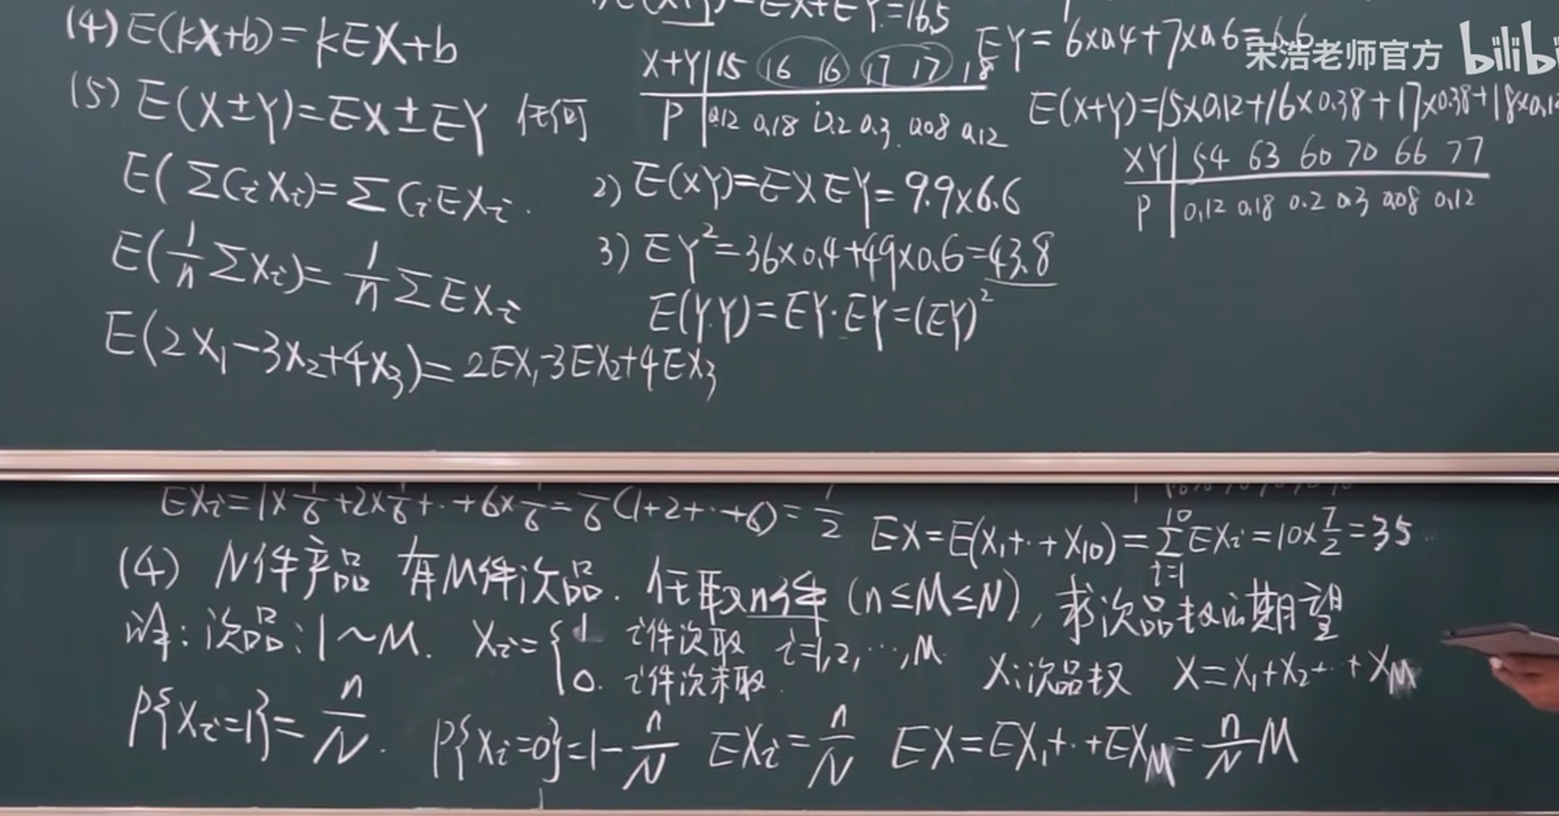 (4) E(kX+b)=kEX+b
(5) E(X±Y)=EX±EY 任何
E(ΣCᵢXᵢ)=ΣCᵢEXᵢ.
E(1/n ΣXᵢ)=1/n ΣEXᵢ
E(2X₁-3X₂+4X₃)=2EX₁-3EX₂+4EX₃
=EX+EY=16.5
X+Y | 15 16 16 17 17 18
P | 0.12 0.18 0.2 0.3 0.08 0.12
2) E(XY)=EXEY=9.9×6.6
3) EY²=36×0.4+49×0.6=43.8
E(Y.Y)=EY·EY=(EY)²
EY=6×0.4+7×0.6=6.6
宋浩老师官方 bilibi
E(X+Y)=15×0.12+16×0.38+17×0.38+18×0.1
XY | 54 63 60 70 66 77
P | 0.12 0.18 0.2 0.3 0.08 0.12
EXᵢ=1×1/6+2×1/6+··+6×1/6=1/6(1+2+··+6)=7/2
EX=E(X₁+··+X₁₀)=Σᵢ₌₁¹⁰EXᵢ=10×7/2=35
(4) N件产品 有M件次品. 任取n件 (n≤M≤N), 求次品数的期望
次品:1~M. Xᵢ={1 i件次取 i=1,2,…,M
0. i件次未取.
X:次品数 X=X₁+X₂+··+X_M
P{Xᵢ=1}=n/N. P{Xᵢ=0}=1-n/N EXᵢ=n/N EX=EX₁+··+EX_M=n/N M